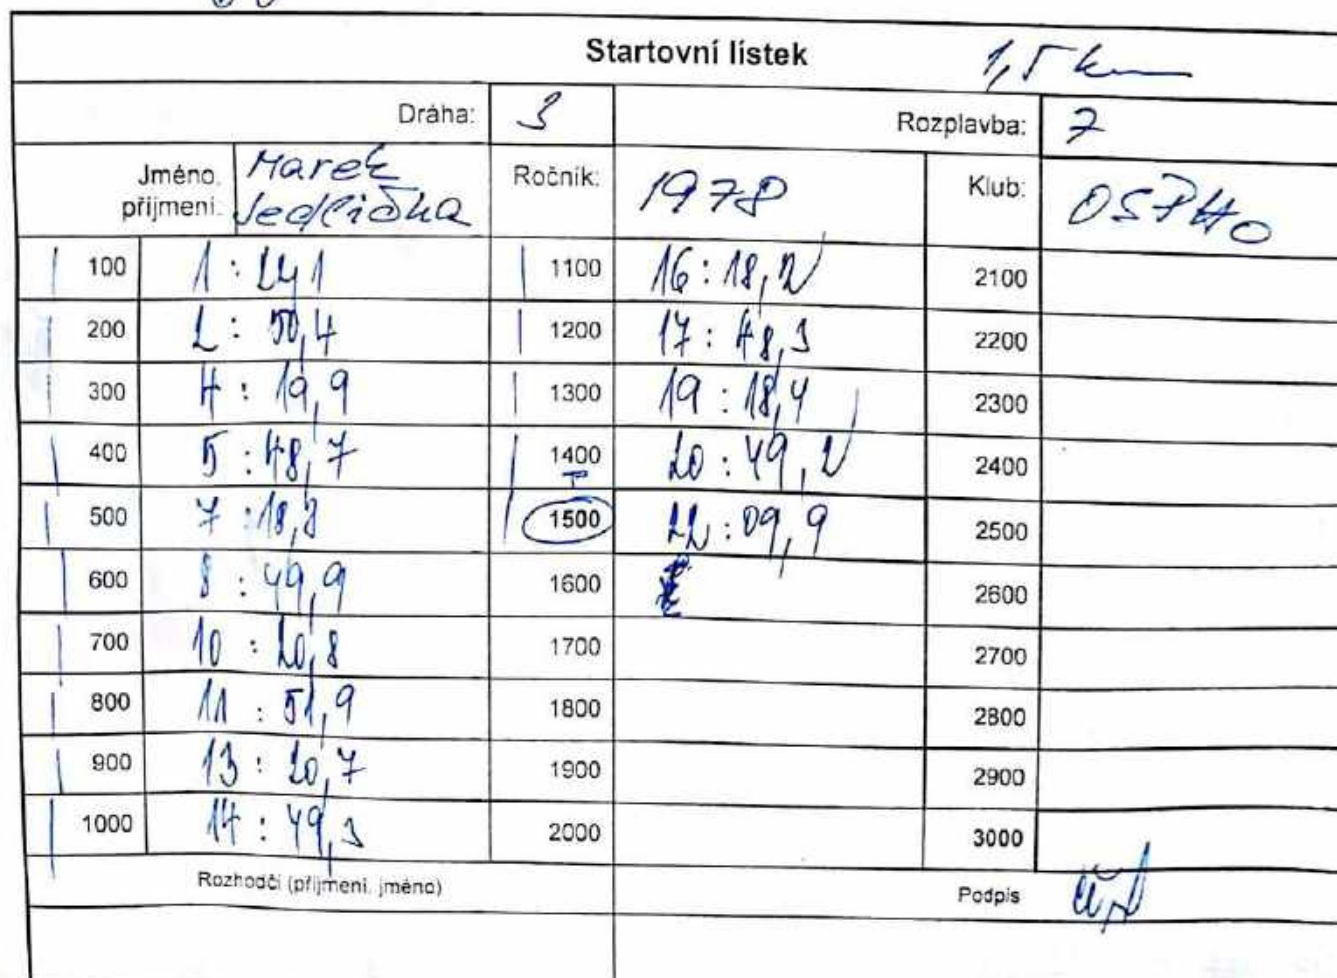 Startovní lístek 1,5 km
Dráha: 3 Rozplavba: 7
Jméno, příjmení: Marek Jedlička Ročník: 1978 Klub: OSPHO
100 1:24,1 1100 16:18,2 2100
200 2:50,4 1200 17:48,3 2200
300 4:19,9 1300 19:18,4 2300
400 5:48,7 1400 20:49,2 2400
500 7:18,8 1500 22:09,9 2500
600 8:49,9 1600 2600
700 10:20,8 1700 2700
800 11:51,9 1800 2800
900 13:20,7 1900 2900
1000 14:49,3 2000 3000
Rozhodčí (příjmení, jméno) Podpis